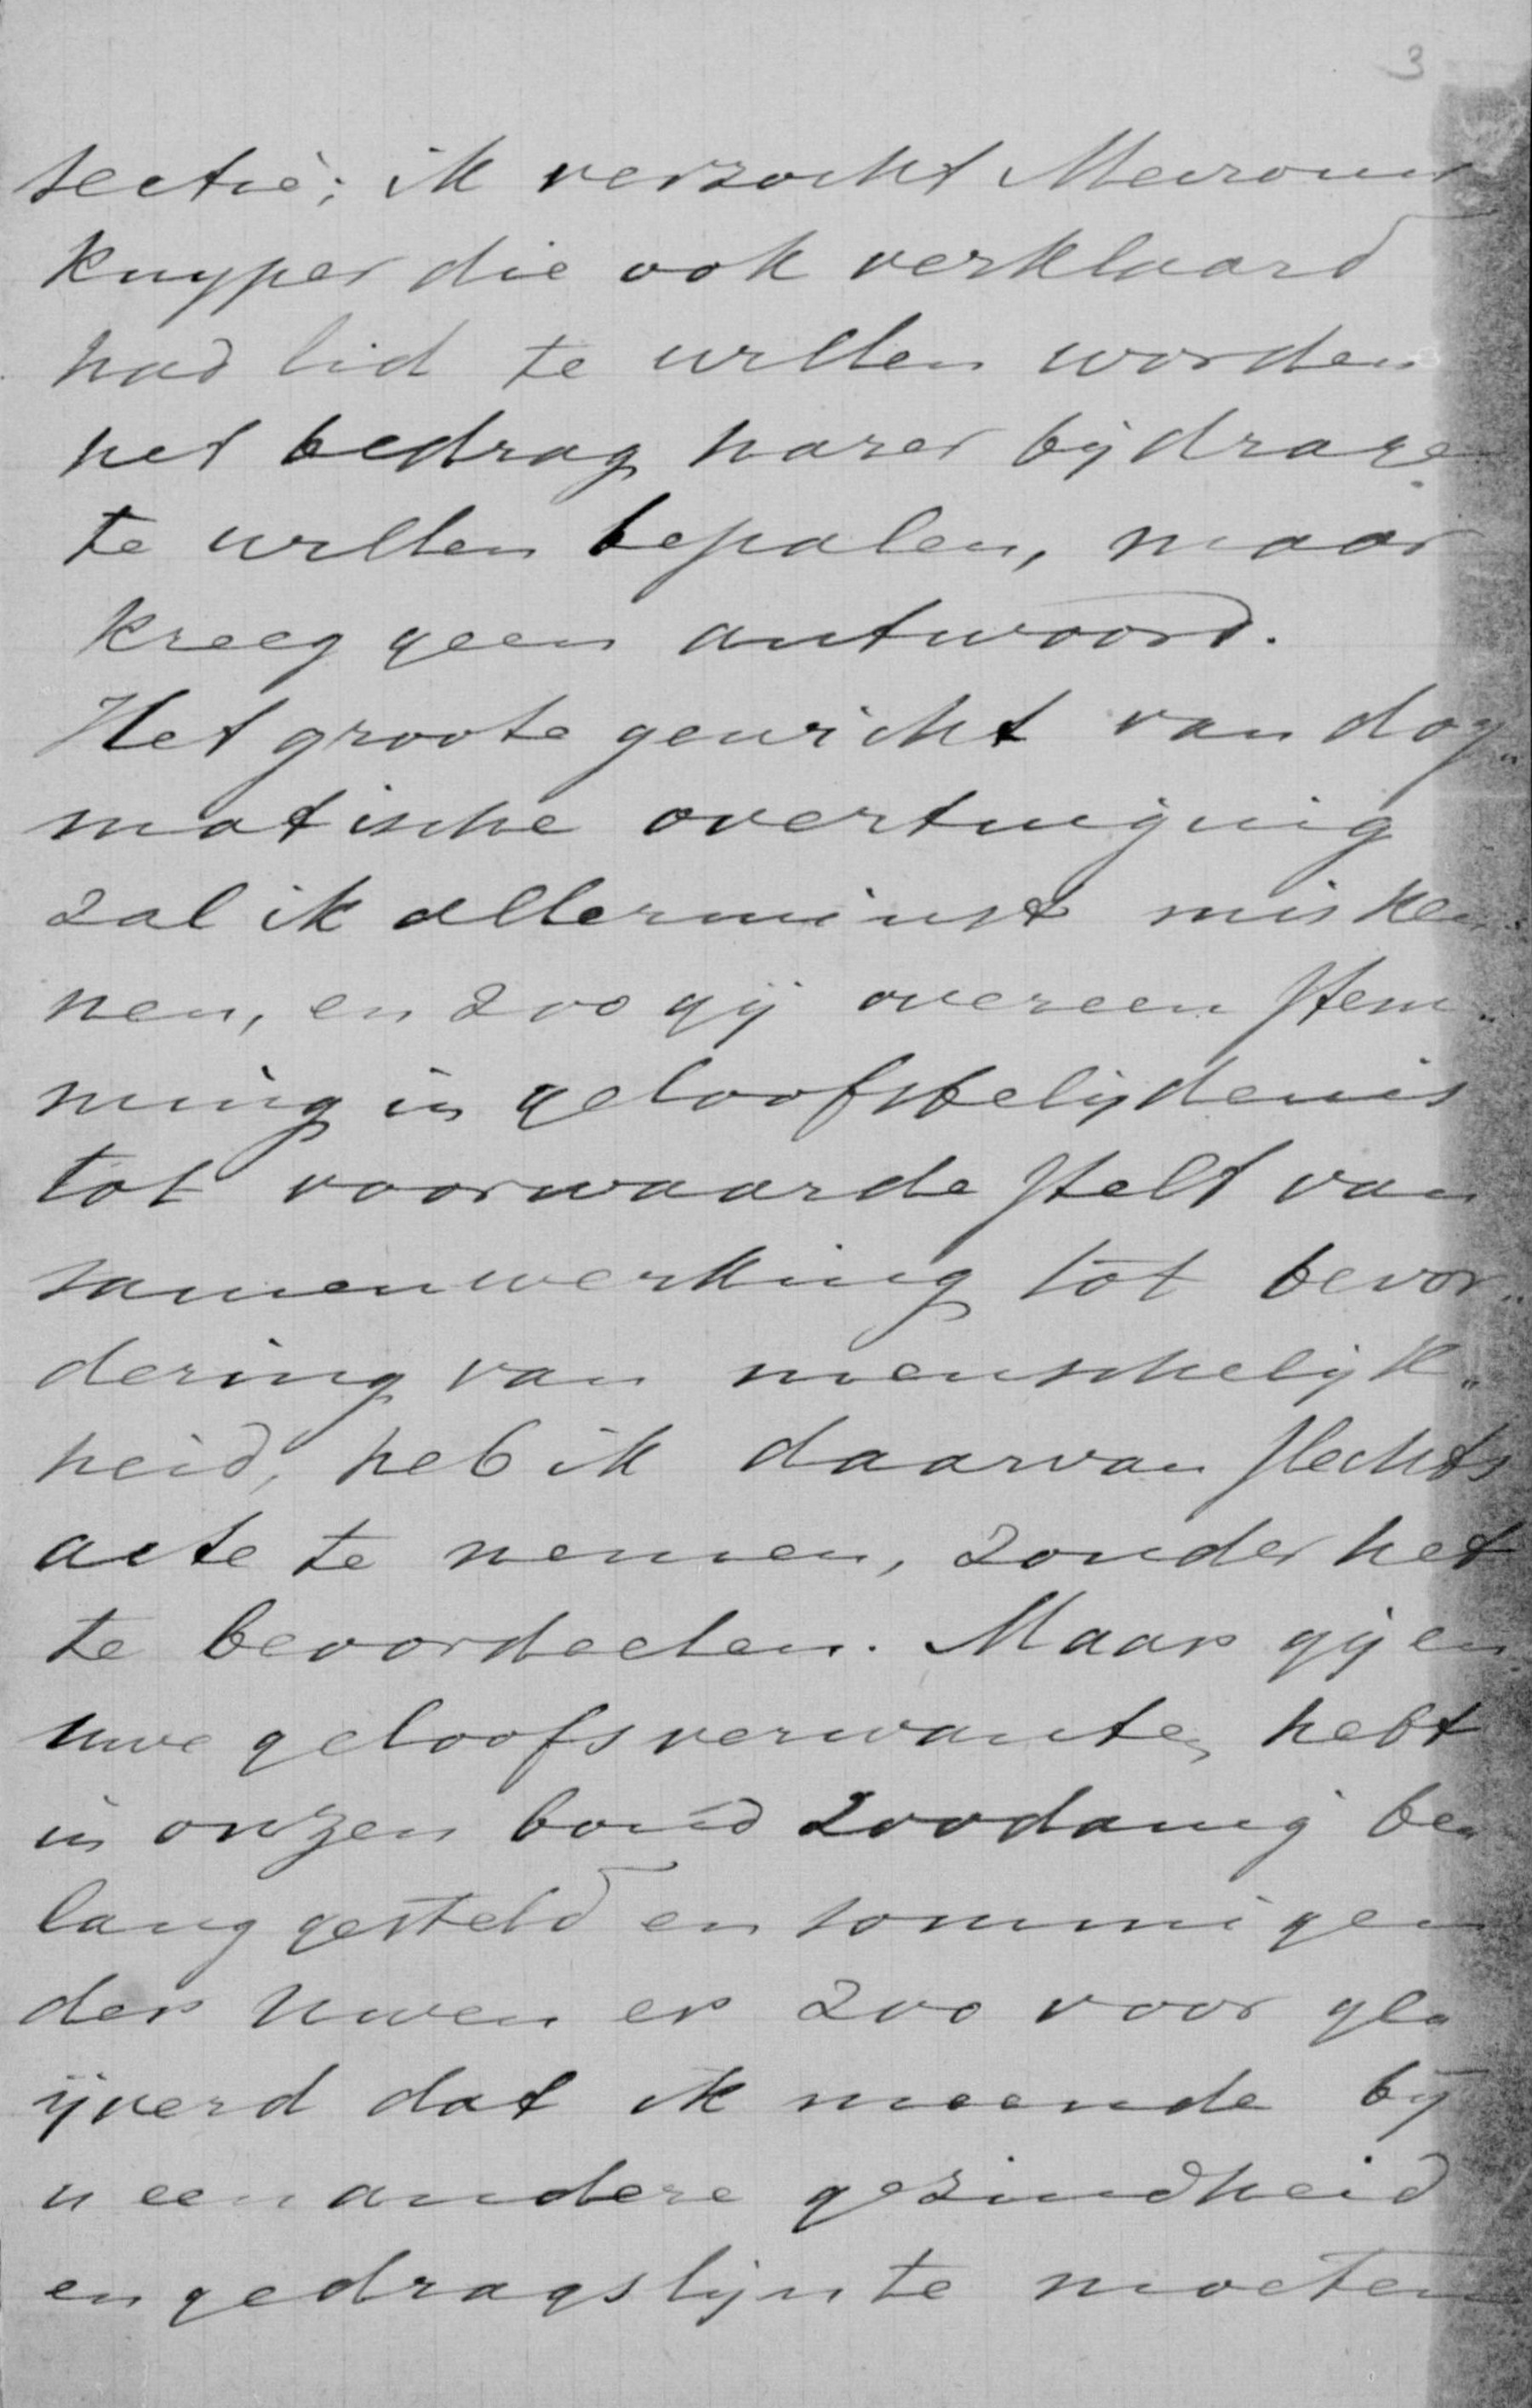 3
sectie; ik verzocht Mevrouw
Kuyper die ook verklaard
had lid te willen worden
het bedrag harer bijdrage
te willen bepalen, maar
kreeg geen antwoord.
Het groote gewicht van dog„
matische overtuiging
zal ik allerminst misken„
nen, en zoo gij overeenstem„
ming in geloofsbelijdenis
tot voorwaarde stelt van
samenwerking tot bevor„
dering van menschelijk„
heid, heb ik daarvan slechts
acte te nemen, zonder het
te beoordeelen. Maar gij en
uwe geloofsverwanten hebt
in onzen bond zoodanig be„
lang gesteld en sommigen
der uwen er zoo voor ge„
ijverd dat ik meende bij
u een andere gezindheid
en gedragslijn te moeten